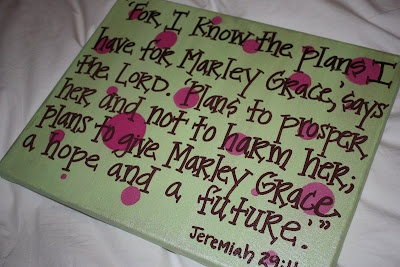 "For I know the plans I
have for Marley Grace,' says
the LORD. 'Plans to prosper
her and not to harm her;
plans to give Marley Grace
a hope and a future.'"
Jeremiah 29:11